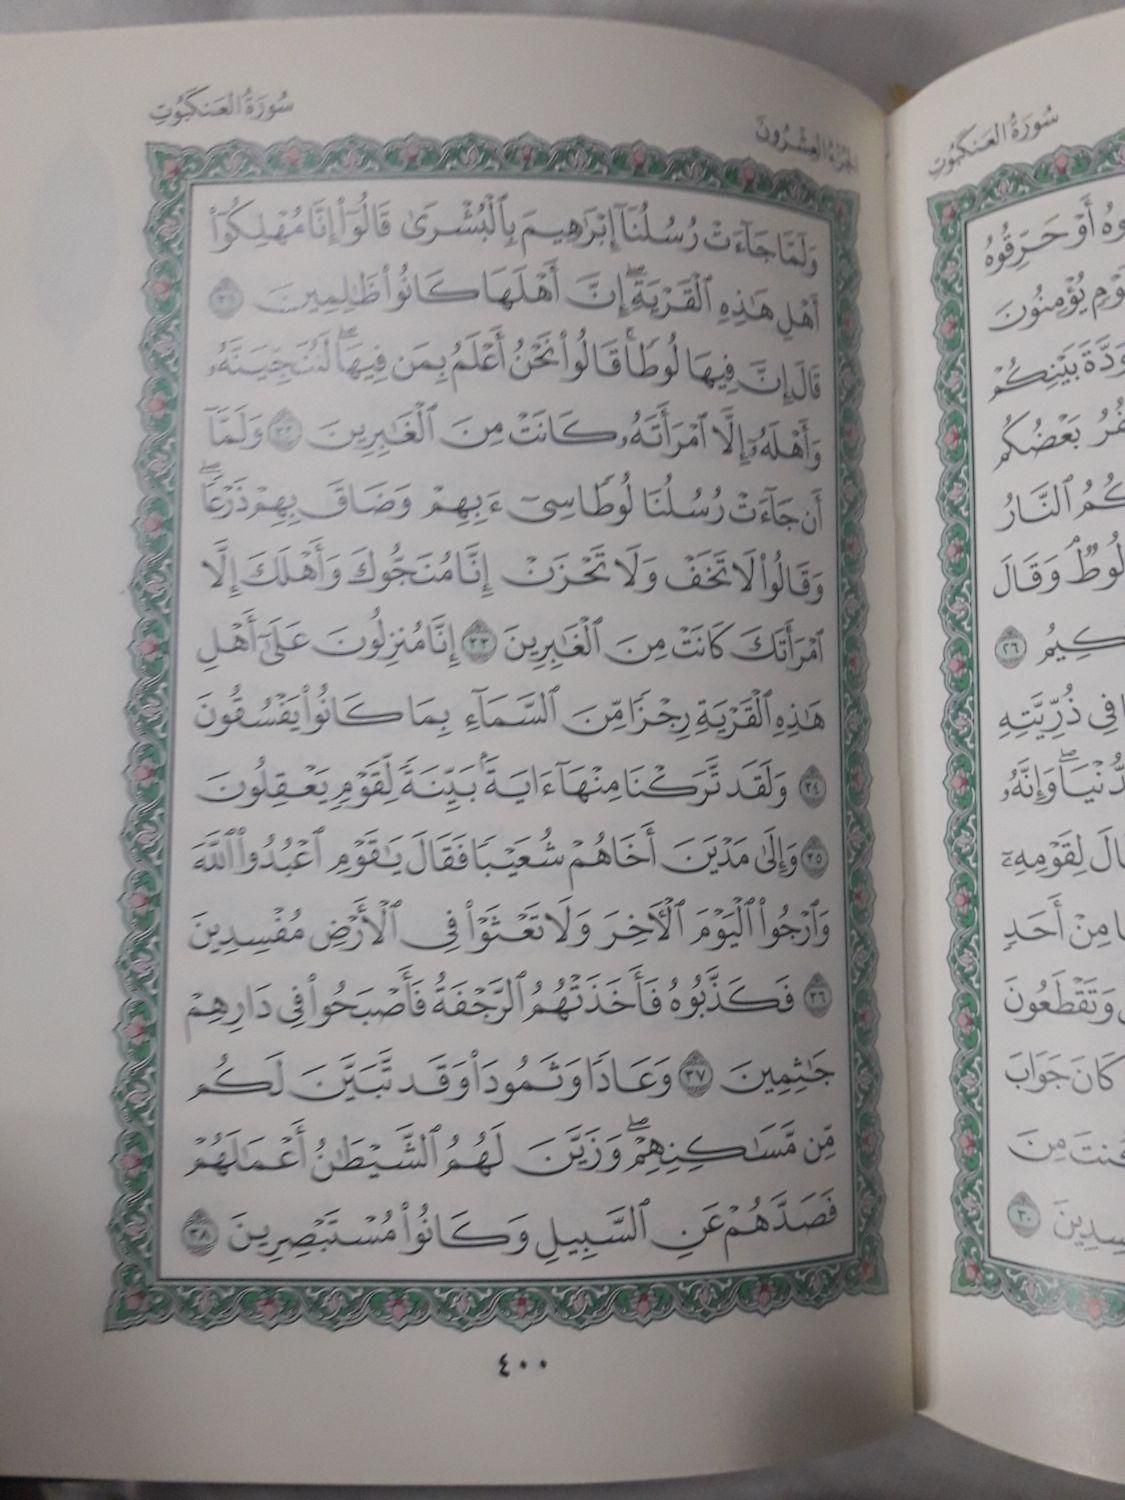 سُورَةُ العَنكَبُوتِ
الجُزْءُ العِشْرُونَ
وَلَمَّا جَآءَتْ رُسُلُنَآ إِبْرَٰهِيمَ بِٱلْبُشْرَىٰ قَالُوٓا۟ إِنَّا مُهْلِكُوٓا۟
أَهْلِ هَٰذِهِ ٱلْقَرْيَةِۖ إِنَّ أَهْلَهَا كَانُوا۟ ظَٰلِمِينَ ٣١
قَالَ إِنَّ فِيهَا لُوطًاۚ قَالُوا۟ نَحْنُ أَعْلَمُ بِمَن فِيهَاۖ لَنُنَجِّيَنَّهُۥ
وَأَهْلَهُۥٓ إِلَّا ٱمْرَأَتَهُۥ كَانَتْ مِنَ ٱلْغَٰبِرِينَ ٣٢ وَلَمَّآ
أَن جَآءَتْ رُسُلُنَا لُوطًا سِىٓءَ بِهِمْ وَضَاقَ بِهِمْ ذَرْعًاۖ
وَقَالُوا۟ لَا تَخَفْ وَلَا تَحْزَنْ إِنَّا مُنَجُّوكَ وَأَهْلَكَ إِلَّا
ٱمْرَأَتَكَ كَانَتْ مِنَ ٱلْغَٰبِرِينَ ٣٣ إِنَّا مُنزِلُونَ عَلَىٰٓ أَهْلِ
هَٰذِهِ ٱلْقَرْيَةِ رِجْزًا مِّنَ ٱلسَّمَآءِ بِمَا كَانُوا۟ يَفْسُقُونَ
٣٤ وَلَقَد تَّرَكْنَا مِنْهَآ ءَايَةًۢ بَيِّنَةً لِّقَوْمٍ يَعْقِلُونَ
٣٥ وَإِلَىٰ مَدْيَنَ أَخَاهُمْ شُعَيْبًا فَقَالَ يَٰقَوْمِ ٱعْبُدُوا۟ ٱللَّهَ
وَٱرْجُوا۟ ٱلْيَوْمَ ٱلْءَاخِرَ وَلَا تَعْثَوْا۟ فِى ٱلْأَرْضِ مُفْسِدِينَ
٣٦ فَكَذَّبُوهُ فَأَخَذَتْهُمُ ٱلرَّجْفَةُ فَأَصْبَحُوا۟ فِى دَارِهِمْ
جَٰثِمِينَ ٣٧ وَعَادًا وَثَمُودَا۟ وَقَد تَّبَيَّنَ لَكُم
مِّن مَّسَٰكِنِهِمْۖ وَزَيَّنَ لَهُمُ ٱلشَّيْطَٰنُ أَعْمَٰلَهُمْ
فَصَدَّهُمْ عَنِ ٱلسَّبِيلِ وَكَانُوا۟ مُسْتَبْصِرِينَ ٣٨
٤٠٠
سُورَةُ العَنكَبُوتِ
أَوْ حَرِّقُوهُ
يُؤْمِنُونَ
بَيْنِكُمْ
بَعْضُكُم
ٱلنَّارُ
لُوطٌۘ وَقَالَ
٢٦
فِى ذُرِّيَّتِهِ
وَإِنَّهُۥ
لِقَوْمِهِۦٓ
مِنْ أَحَدٍ
وَتَقْطَعُونَ
كَانَ جَوَابَ
مِنَ
٣٠